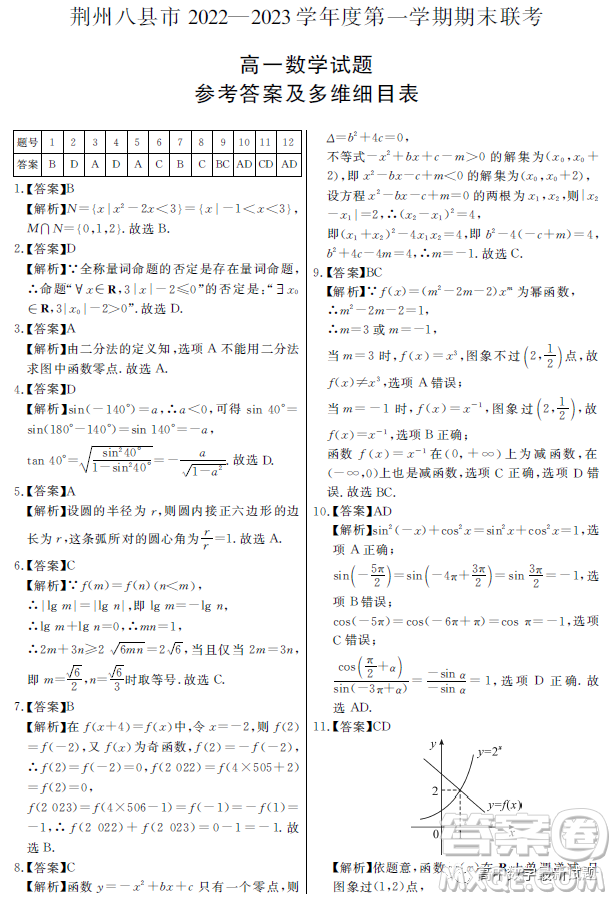 荆州八县市 2022—2023 学年度第一学期期末联考
高一数学试题
参考答案及多维细目表
题号 1 2 3 4 5 6 7 8 9 10 11 12
答案 B D A D A C B C BC AD CD AD
1.【答案】B
【解析】N={x|x²-2x<3}={x|-1<x<3},
M∩N={0,1,2}.故选 B.
2.【答案】D
【解析】∵全称量词命题的否定是存在量词命题,
∴命题“∀x∈R,3|x|-2≤0”的否定是:“∃x₀
∈R,3|x₀|-2>0”.故选 D.
3.【答案】A
【解析】由二分法的定义知,选项 A 不能用二分法
求图中函数零点.故选 A.
4.【答案】D
【解析】sin(-140°)=a,∴a<0,可得 sin 40°=
sin(180°-140°)=sin 140°=-a,
tan 40°=√(sin²40°/(1-sin²40°))=-a/√(1-a²).故选 D.
5.【答案】A
【解析】设圆的半径为 r,则圆内接正六边形的边
长为 r,这条弧所对的圆心角为 r/r=1.故选 A.
6.【答案】C
【解析】∵f(m)=f(n)(n<m),
∴|lg m|=|lg n|,即 lg m=-lg n,
∴lg m+lg n=0,∴mn=1,
∴2m+3n≥2√(6mn)=2√6,当且仅当 2m=3n,
即 m=√6/2,n=√6/3时取等号.故选 C.
7.【答案】B
【解析】在 f(x+4)=f(x)中,令 x=-2,则 f(2)
=f(-2),又 f(x)为奇函数,∴f(-2)=-f(2),
∴f(2)=f(-2)=0,f(2 022)=f(4×505+2)
=f(2)=0,
f(2 023)=f(4×506-1)=f(-1)=-f(1)
=-1,∴f(2 022)+f(2 023)=0-1=-1.故
选 B.
8.【答案】C
【解析】函数 y=-x²+bx+c 只有一个零点,则
Δ=b²+4c=0,
不等式-x²+bx+c-m>0 的解集为(x₀,x₀+
2),即 x²-bx-c+m<0 的解集为(x₀,x₀+2),
设方程 x²-bx-c+m=0 的两根为 x₁,x₂,则|x₂
-x₁|=2,∴(x₂-x₁)²=4,
即(x₁+x₂)²-4x₁x₂=4,即 b²-4(-c+m)=4,
b²+4c-4m=4,∴m=-1.故选 C.
9.【答案】BC
【解析】∵f(x)=(m²-2m-2)xᵐ 为幂函数,
∴m²-2m-2=1,
∴m=3 或 m=-1,
当 m=3 时,f(x)=x³,图象不过(2,1/2)点,故
f(x)≠x³,选项 A 错误;
当 m=-1 时,f(x)=x⁻¹,图象过(2,1/2),故
f(x)=x⁻¹,选项 B 正确;
函数 f(x)=x⁻¹在(0,+∞)上为减函数,在
(-∞,0)上也是减函数,选项 C 正确,选项 D 错
误.故选 BC.
10.【答案】AD
【解析】sin²(-x)+cos²x=sin²x+cos²x=1,选
项 A 正确;
sin(-5π/2)=sin(-4π+3π/2)=sin 3π/2=-1,选
项 B 错误;
cos(-5π)=cos(-6π+π)=cosπ=-1,选项
C 错误;
cos(π/2+α)/sin(-3π+α)=-sin α/-sin α=1,选项 D 正确.故
选 AD.
11.【答案】CD
y
y=2ˣ
2
y=f(x)
0
x
【解析】依题意,函数
图象过(1,2)点,